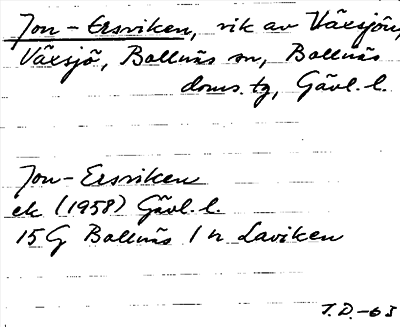 Jon-Ersviken, vik av Växsjön,
Växsjö, Bollnäs sn, Bollnäs
doms.tg, Gävl. l.
Jon-Ersviken
ek (1958) Gävl. l.
15G Bollnäs 1 n Laviken
T.D.-63